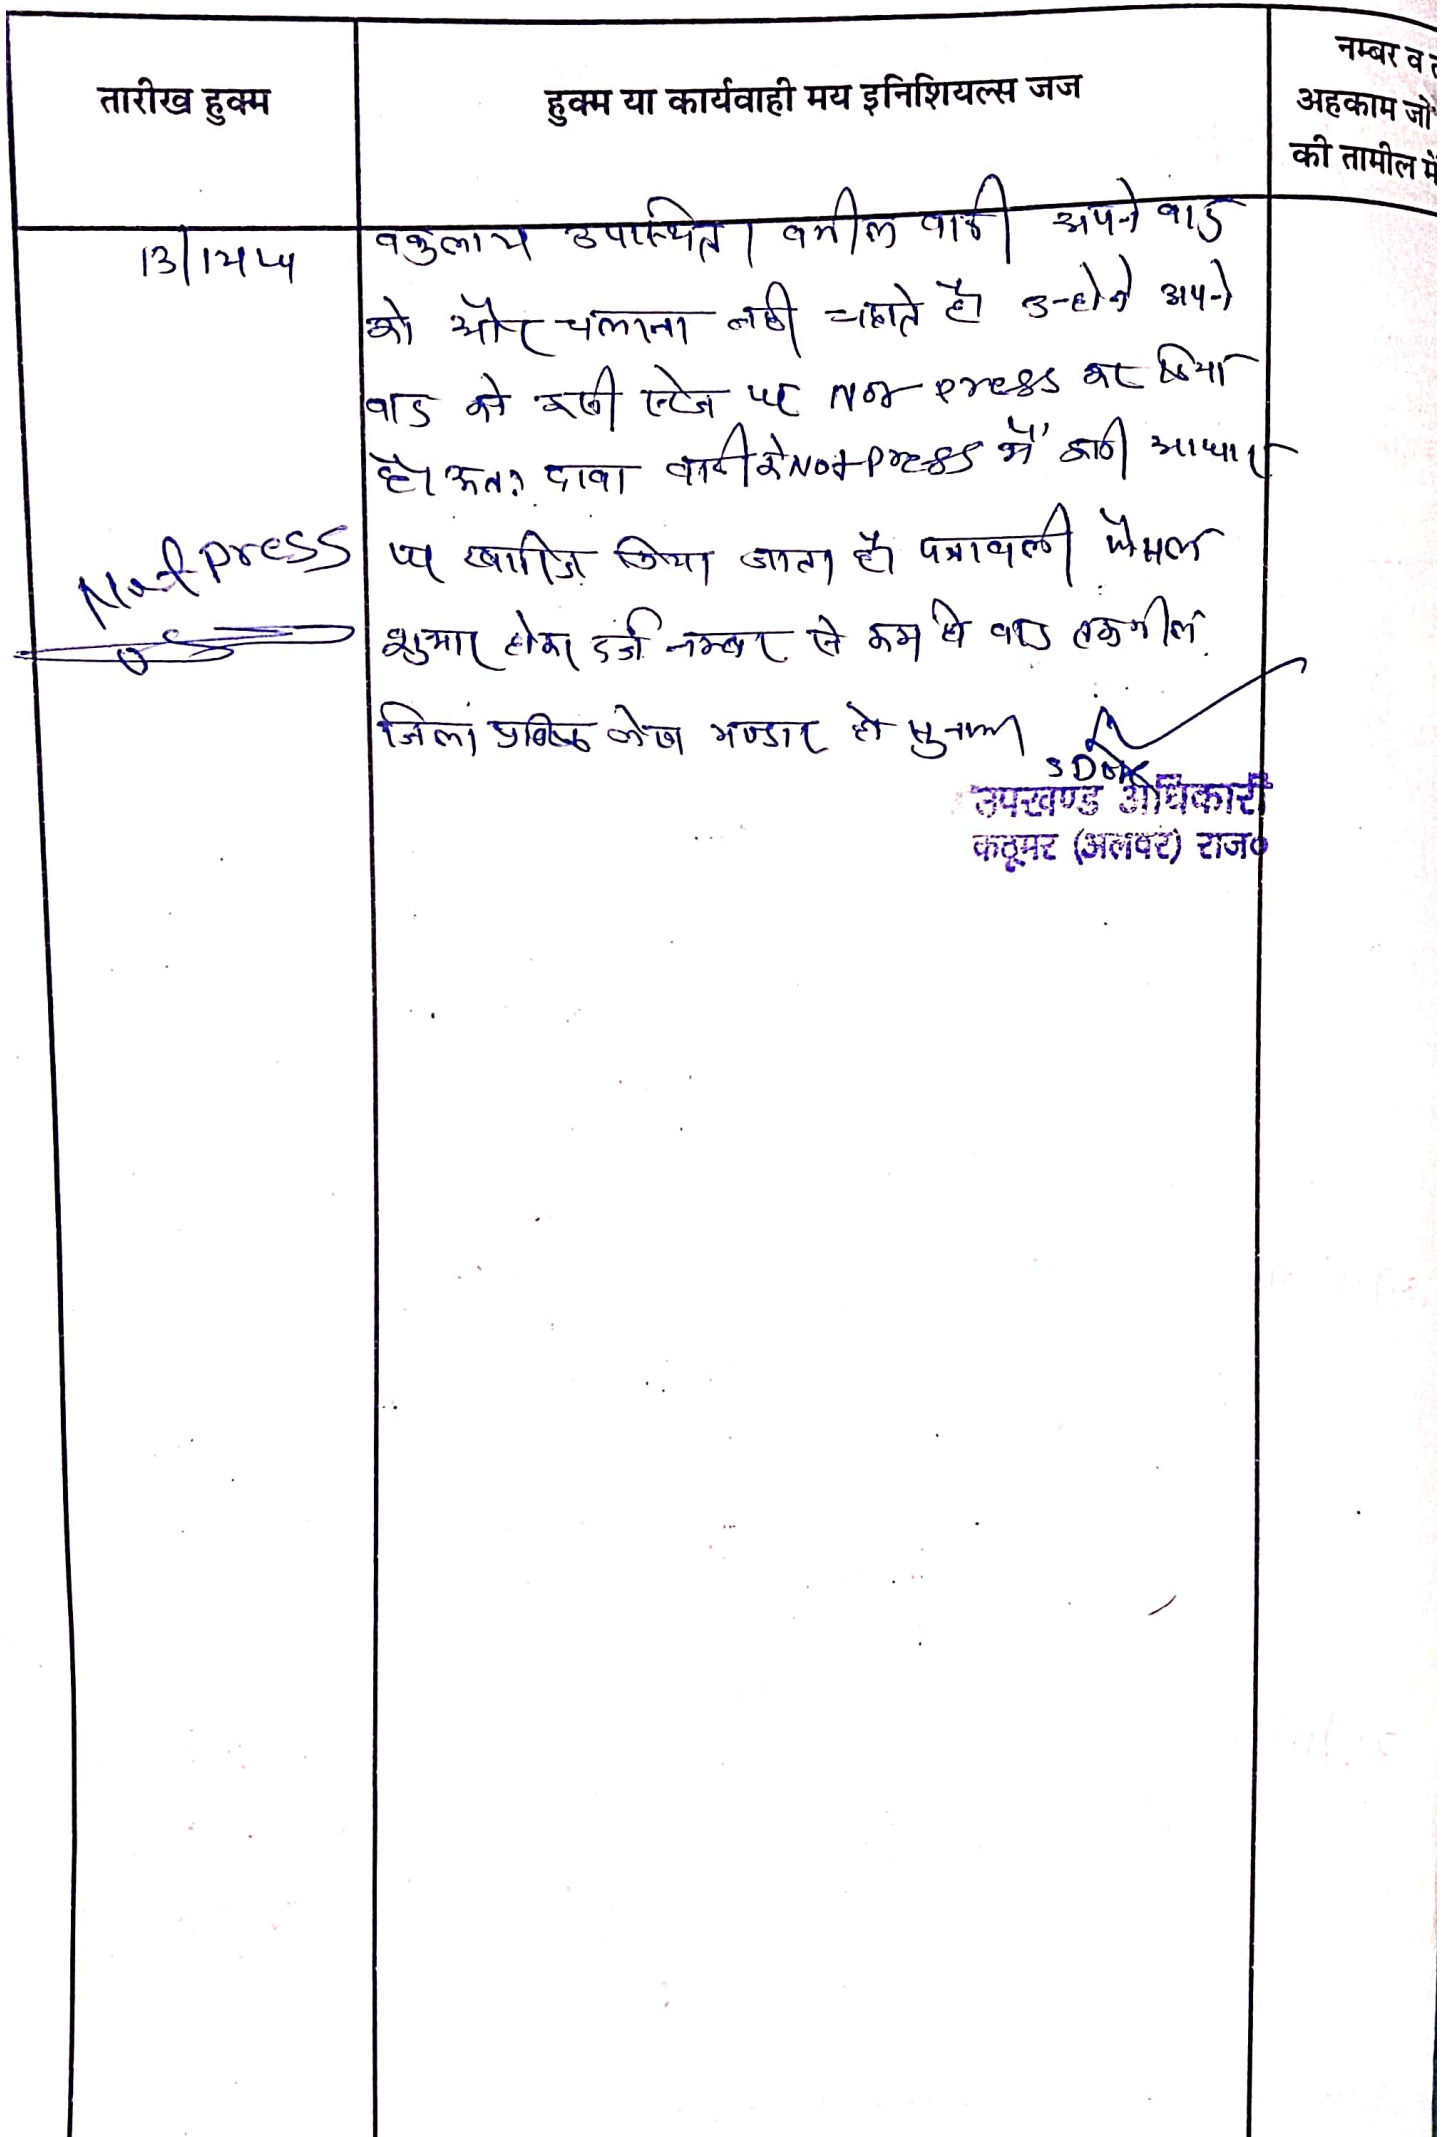 तारीख हुक्म
हुक्म या कार्यवाही मय इनिशियल्स जज
नम्बर व
अहकाम जो
की तामील में
13/
वकुलाय उपास्थित। वकील वादी अपने वाद
को और चलाना नही चाहते है। उन्होने अपने
वाद को इसी स्टेज पर Not press कर दिया
है। अतः दावा वादी के Not press में इसी आधार
पर खारिज किया जाता है। पत्रावली फैसल
शुमार होकर दर्ज नम्बर से कम हो वाद तकमील
जिला अभिलेख भण्डार हो।
Not press
SDO
उपखण्ड अधिकारी
कठूमर (अलवर) राज०